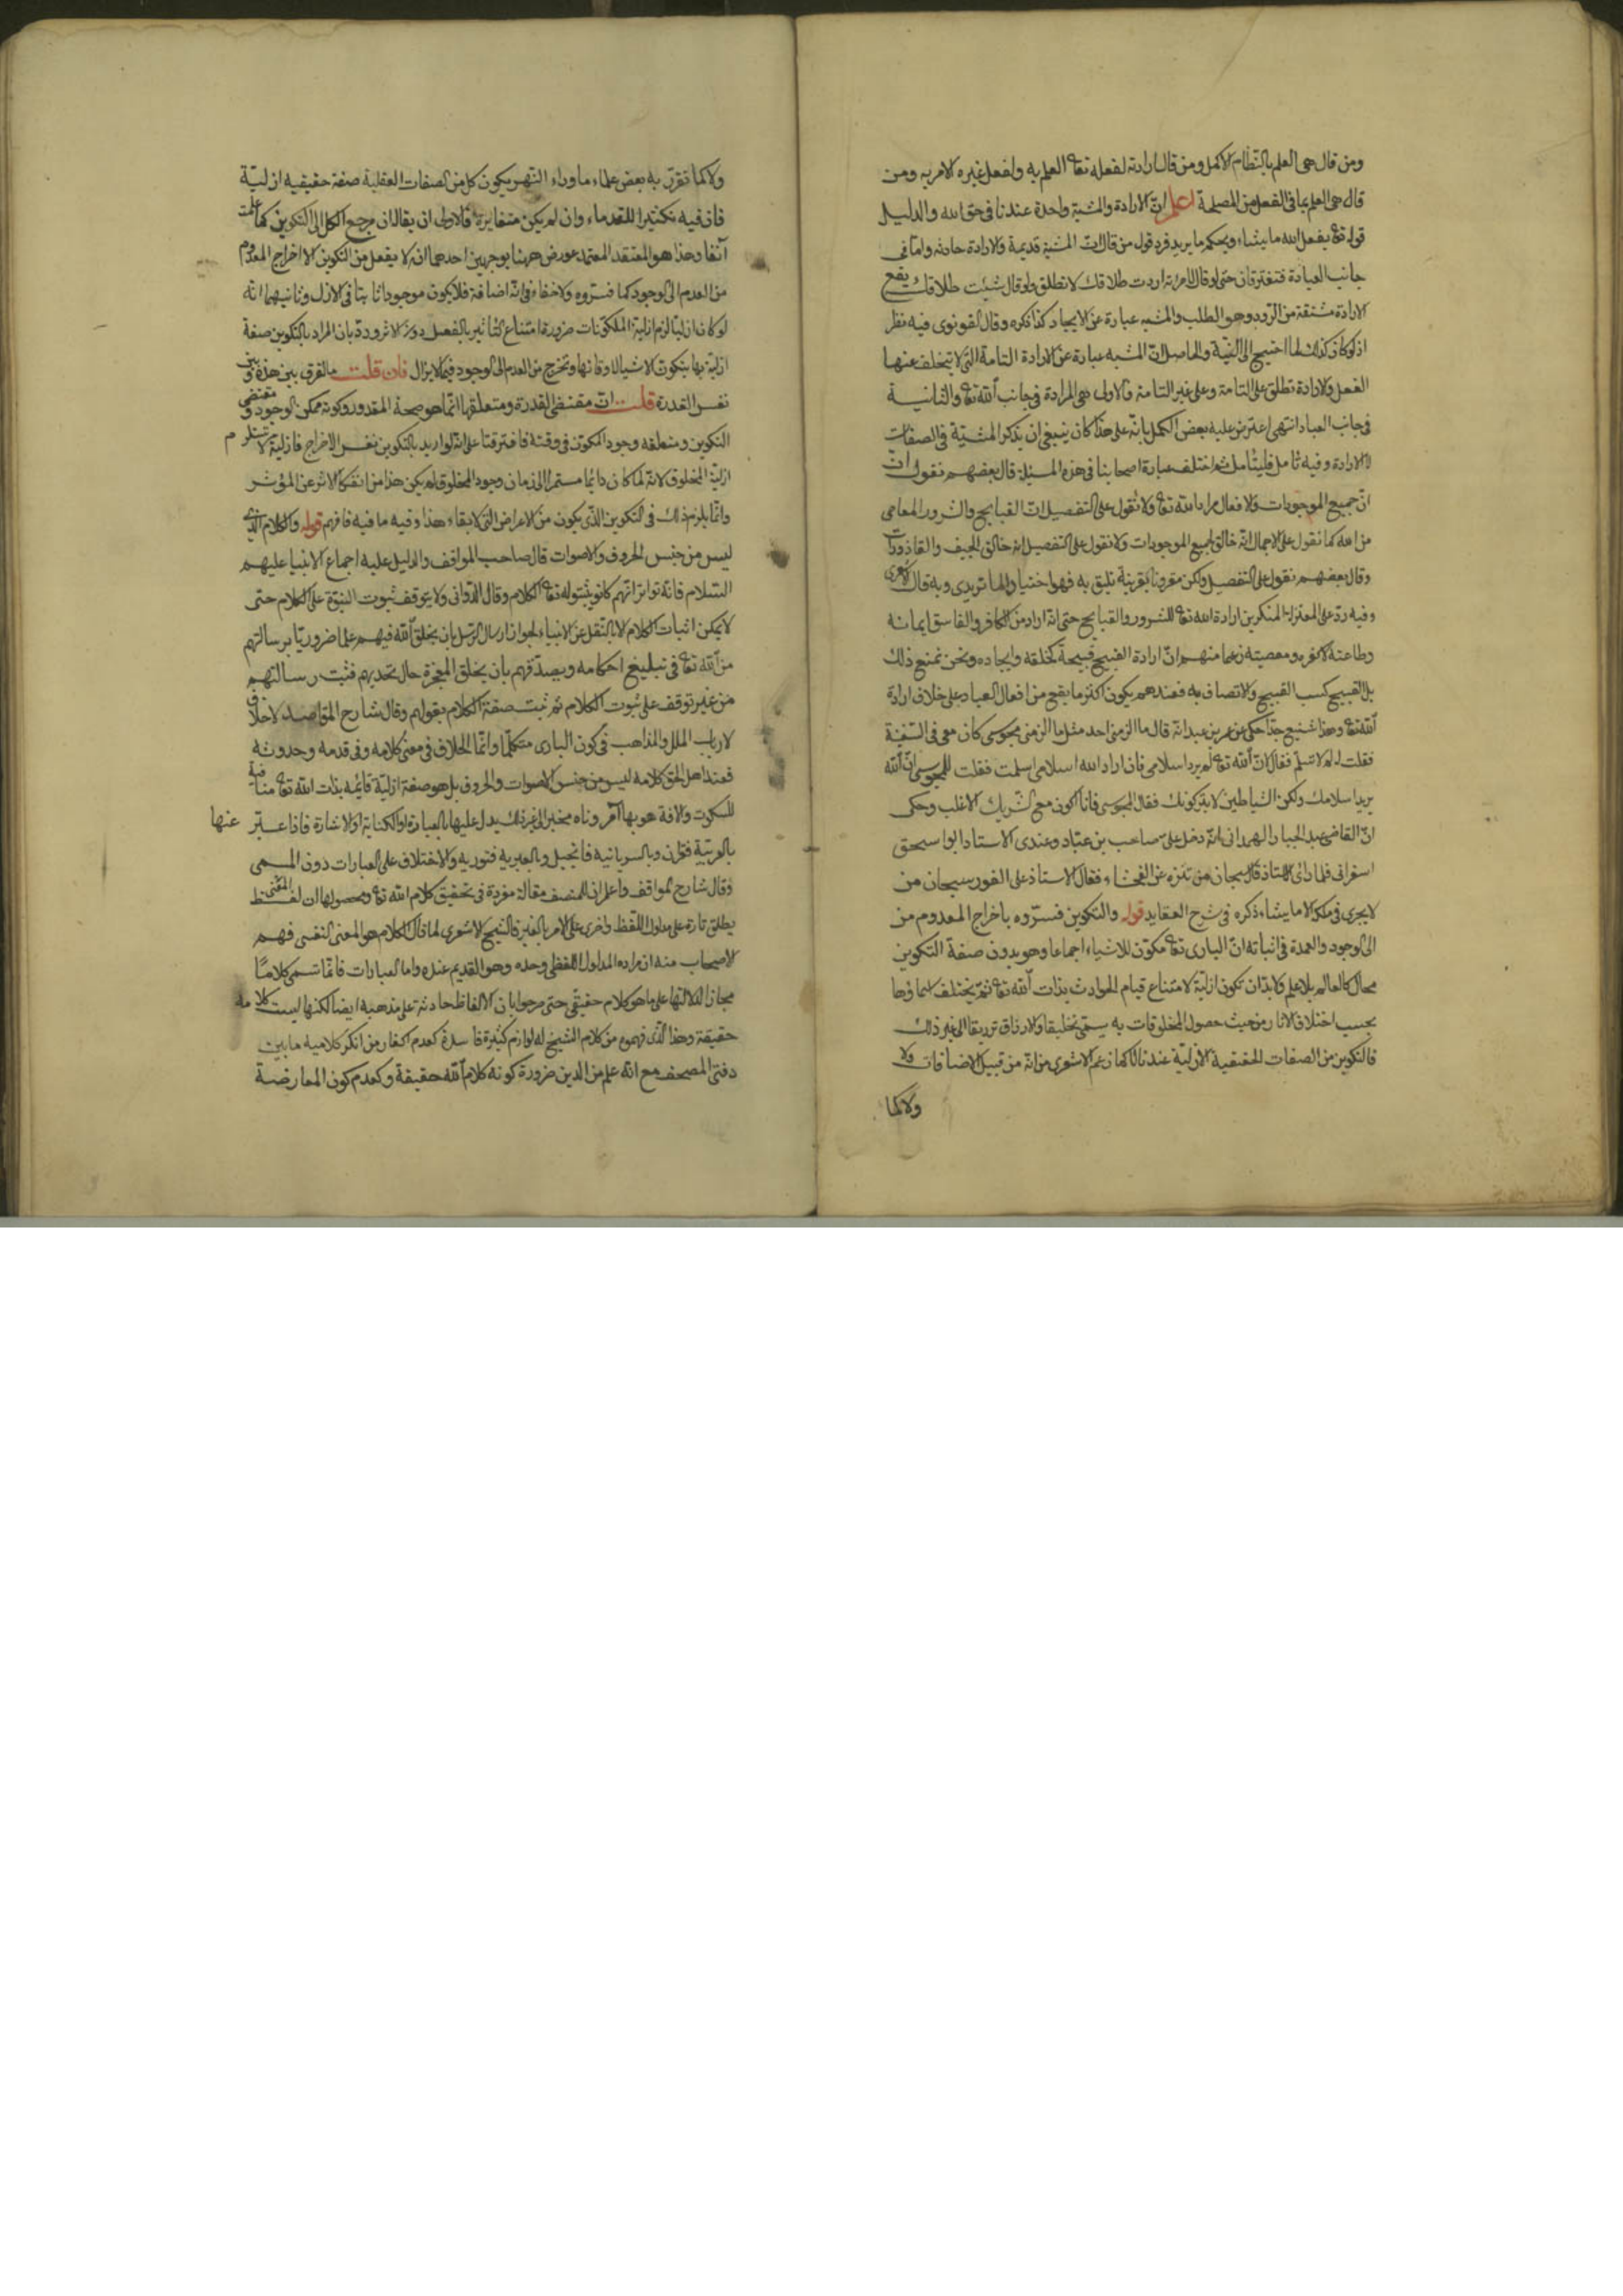 ومن قال هى العلم بالنظام الاكمل ومن قال ارادته لفعله تعا العلم به ولفعل غيره الامر به ومن
قال هى العلم بما فى الفعل من المصلحة اعلم انّ الارادة والمشية واحدة عندنا فى حق الله والدليل
قوله تعا يفعل الله ما يشاء ويحكم ما يريد فرد قول من قال انّ المشية قديمة والارادة حادثه واما فى
جانب العباد فتفترقان حتى لو قال لامراته اردت طلاقك لا تطلق ولو قال شئت طلاقك يقع
الارادة مشتقة من الرود وهو الطلب والمشيه عبارة عن الايجاد كذا ذكره وقال القونوى فيه نظر
اذ لو كان كذلك لما احتيج الى النيّة والحاصل انّ المشيه عبارة عن الارادة التامة التى لا يتخلف عنها
الفعل والارادة تطلق على التامة وعلى غير التامة والاولى هى المرادة فى جانب الله تعا والثانية
فى جانب العباد انتهى اعترض عليه بعض الكمل بانه على هذا كان ينبغى ان يذكر المشيّة فى الصفات
لا الارادة وفيه تامل فليتامل ثم اختلف عبارة اصحابنا فى هذه المسئلة قال بعضهم نقول انّ
انّ جميع الموجودات والافعال مراد الله تعا ولا نقول على التفصيل انّ القبايح والشرور والمعاصى
من الله كما نقول على الاجمال انّه خالق لجميع الموجودات ولا نقول على التفصيل انه خالق الجيف والقاذورات
وقال بعضهم نقول على التفصيل ولكن مقرونا بقرينة تليق به فهو اختيار الماتريدى وبه قال الاشعرى
وفيه ردّ على المعتزلة المنكرين ارادة الله تعا للشرور والقبايح حتى انه اراد من الكافر والفاسق ايمانه
وطاعته لا كفره ومعصيته زعما منهم انّ ارادة القبيح قبيحة كخلقه وايجاده ونحن نمنع ذلك
بل القبيح كسب القبيح والاتصاف به فعندهم يكون اكثر ما يقع من افعال العباد على خلاف ارادة
الله تعا وهذا شنيع جدّا حكى عن عمر بن عبيد انه قال ما الزمنى احد مثل ما الزمنى مجوسى كان معى فى السفينة
فقلت له لم لا تسلم فقال انّ الله تعا لم يرد اسلامى فان اراد الله اسلامى اسلمت فقلت للمجوسى انّ الله
يريد اسلامك ولكن الشياطين لا يتركونك فقال المجوسى فانا اكون مع الشريك الاغلب وحكى
انّ القاضى عبد الجبار الهمدانى انّه دخل على صاحب بن عبّاد وعندى الاستاد ابوا سيحق
اسفرانى فلما راى الاستاذ قال سبحان من تنزه عن الفحشاء فقال الاستاذ على الفور سبحان من
لا يجرى فى ملكه الا ما يشاء ذكره فى شرح العقايد قوله والتكوين فسّروه باخراج المعدوم من
الى الوجود والعمدة فى اثباته انّ البارى تعا مكوّن للاشياء اجماعا وهو بدون صفة التكوين
محال كالعالم بلا علم ولا بدّ ان تكون ازليّة لامتناع قيام الحوادث بذات الله تعا ثمّ يختلف اسماؤها
بحسب اختلاف الاثار من حيث حصول المخلوقات به يسمّى تخليقا والارزاق ترزيقا الى غير ذلك
فالتكوين من الصفات الحقيقية الازليّة عندنا لا كما زعم الاشعرى من انّه من قبيل الاضافات ولا
ولا كما
ولا كما تفرّد به بعض علماء ما وراء النهر بكون كل من الصفات الفعلية صفة حقيقيه ازليّة
فان فيه تكثيرا للقدماء وان لم يكن متغايرة فالاولى ان يقال ان مرجع الكل الى التكوين كما علمت
آنفا وهذا هو المعتقد المعتمد عورض ههنا بوجهين احدهما انه لا يعقل من التكوين الا اخراج المعدوم
من العدم الى الوجود كما فسّروه ولا خفاء فى انّه اضافة فلا يكون موجودا ثابتا فى الازل وثانيهما انّه
لو كان ازليّا لزم ازلية المكوّنات ضرورة امتناع التأثير بالفعل دون الاثر وردّ بان المراد بالتكوين صفة
ازليّة بها يتكون الاشيا لاوقاتها وتخرج من العدم الى الوجود فيما لا يزال فان قلت ما الفرق بين هذه وبين
نفس القدرة قلت انّ مقتضى القدرة ومتعلقها انّما هو صحة المقدور وكونه ممكن الوجود ومقتضى
التكوين ومتعلقه وجود المكوّن فى وقته فافترقتا على انّه لو اريد بالتكوين نفس الاخراج فازليته لا تستلزم
ازليّة المخلوق لانّه لمّا كان دائما مستمرا الى زمان وجود المخلوق لم يكن هذا من انفكاك الاثر عن المؤثر
وانّما يلزم ذلك فى التكوين الذّى يكون من الاعراض التى لا بقاء هذا وفيه ما فيه فافهم قوله والكلام الذّى
ليس من جنس الحروف والاصوات قال صاحب المواقف والدليل عليه اجماع الانبيا عليهم
السّلام فانّه تواتر انّهم كانوا يثبتوا له تعا الكلام وقال الدّوانى ولا يتوقف ثبوت النبوّة على الكلام حتى
لا يمكن اثبات الكلام الا بالنّقل عن الانبياء لجواز ارسال الرسل بان يخلق الله فيهم علما ضروريّا برسالتهم
من الله تعا فى تبليغ احكامه ويصدّقهم بان يخلق المعجزة حال تحديهم فثبت رسالتهم
من غير توقف على ثبوت الكلام ثم ثبت صفة الكلام بقولهم وقال شارح المقاصد لا خلاف
لارباب الملل والمذاهب فى كون البارى متكلّما وانّما الخلاف فى معنى كلامه وفى قدمه وحدوثه
فعند اهل الحق كلامه ليس من جنس الاصوات والحروف بل هو صفة ازليّة قائمه بذات الله تعا منافية
للسكوت والافة هو بها آمر وناه مخبر الى غير ذلك يدل عليها بالعبارة او الكناية او الاشارة فاذا عبّر عنها
بالعربيّة فقرآن وبالسريانيه فانجيل وبالعبريه فتوريه والاختلاف على العبارات دون المسمى
وقال شارح المواقف واعلم ان للمصنف مقالة مفردة فى تحقيق كلام الله تعا ومحصولها ان لفظ المعنى
يطلق تارة على مدلول اللفظ واخرى على الامر بالغير فالشيخ الاشعرى لما قال الكلام هو المعنى النفسى فهم
الاصحاب منه ان مراده المدلول اللفظى وحده وهو القديم عنده واما العبارات فانّما تسمى كلامًا
مجازا لدلالتها على ما هو كلام حقيقى حتى صرحوا بان الالفاظ حادثة على مذهبه ايضا لكنها ليست كلامه
حقيقة وهذا الّذى فهموه من كلام الشيخ له لوازم كثيرة فاسدة كعدم اكفار من انكر كلاميه ما بين
دفتى المصحف مع انّه علم من الدين ضرورة كونه كلام الله حقيقة وكعدم كون المعارضة